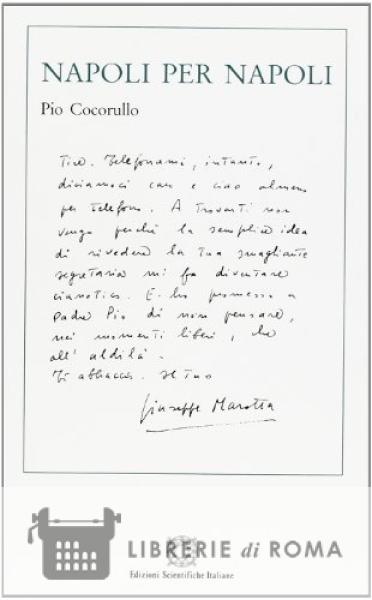 NAPOLI PER NAPOLI
Pio Cocorullo
Telefonami, intanto,
diciamoci e ciao almeno
per telefono. A trovarti non
vengo perché la semplice idea
di rivedere la tua smagliante
segretaria mi fa diventare
cianotico. E ho promesso a
Padre Pio di non pensare,
nei momenti liberi, che
all'aldilà.
Ti abbraccio. Il tuo
Giuseppe Marotta
LIBRERIE di ROMA
Edizioni Scientifiche Italiane